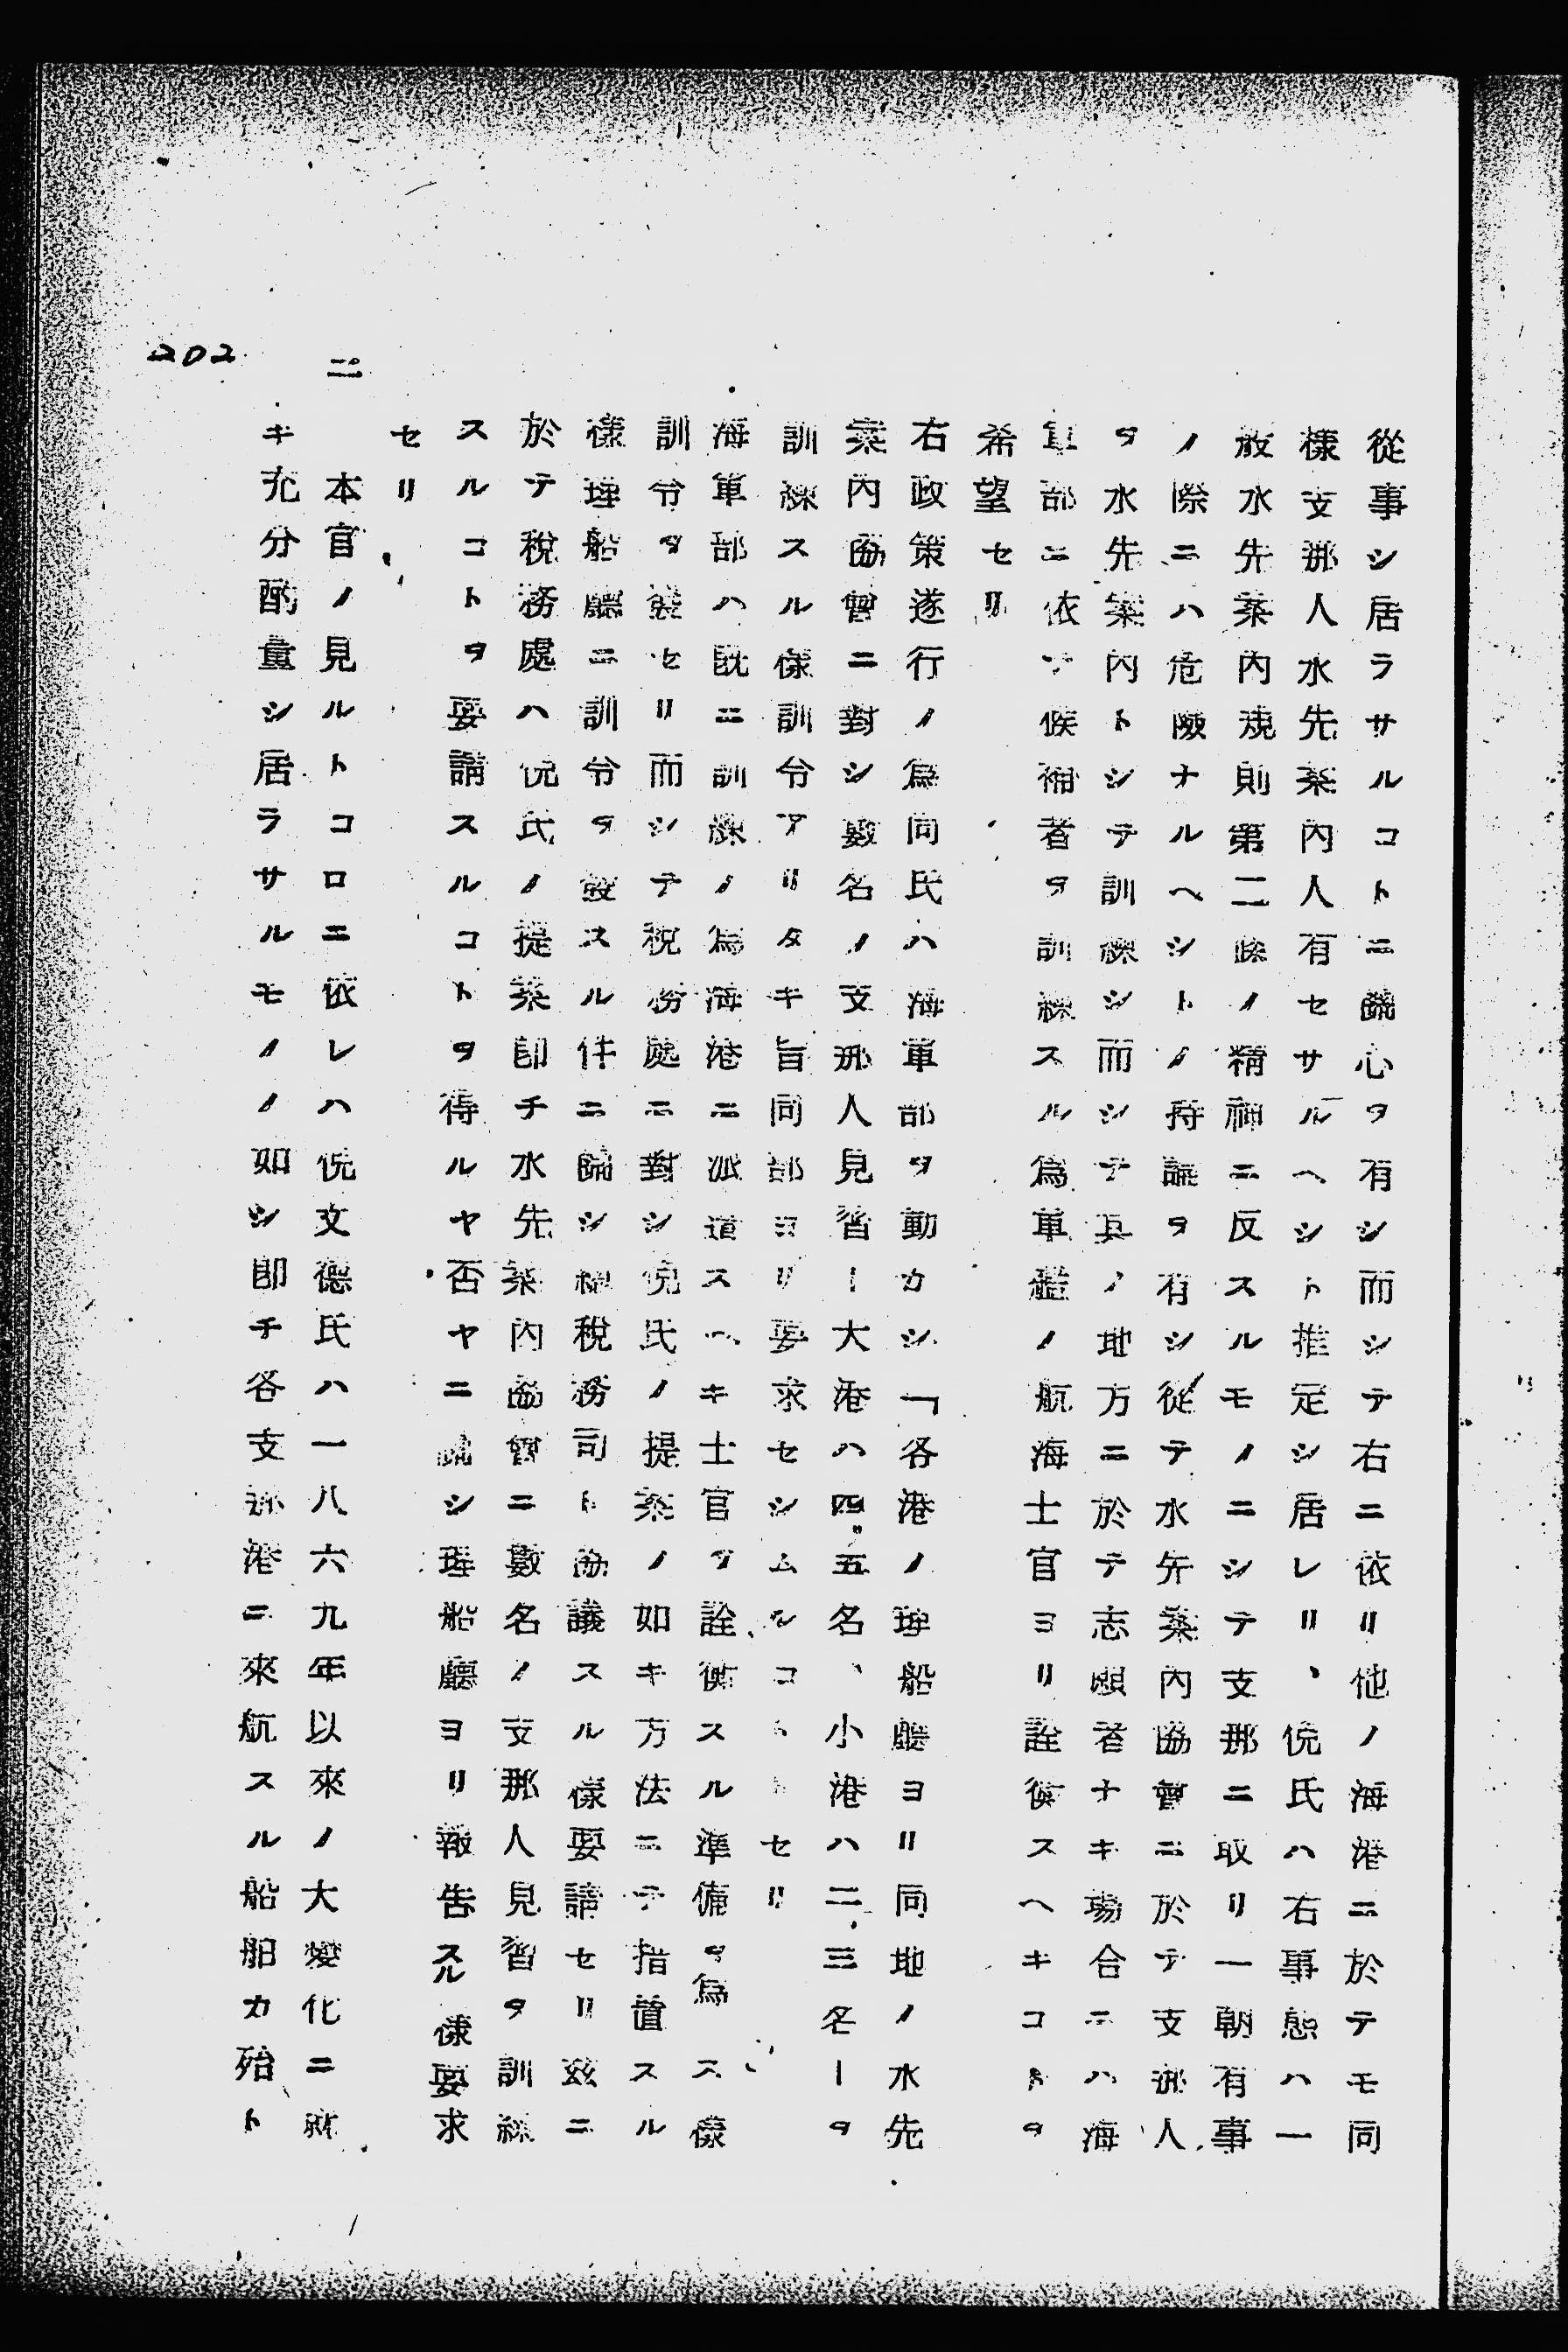 從事シ居ラサルコトニ關心ヲ有シ而シテ右ニ依リ他ノ海港ニ於テモ同
樣支那人水先案內人有セサルヘシト推定シ居レリ、倪氏ハ右事態ハ一
般水先案內規則第二條ノ精神ニ反スルモノニシテ支那ニ取リ一朝有事
ノ際ニハ危險ナルヘシトノ持論ヲ有シ從テ水先案內協會ニ於テ支那人
ヲ水先案內トシテ訓練シ而シテ其ノ地方ニ於テ志願者ナキ場合ニハ海
軍部ニ依テ候補者ヲ訓練スル爲軍艦ノ航海士官ヨリ詮衡スヘキコトヲ
希望セリ
右政策遂行ノ爲同氏ハ海軍部ヲ動カシ「各港ノ理船廳ヨリ同地ノ水先
案內協會ニ對シ數名ノ支那人見習ー大港ハ四五名、小港ハ二三名ーヲ
訓練スル樣訓令アリタキ旨同部ヨリ要求セシムルコトトセリ
海軍部ハ既ニ訓練ノ爲海港ニ派遣スヘキ士官ヲ詮衡スル準備ヲ爲ス樣
訓令ヲ發セリ而シテ稅務處ニ對シ倪氏ノ提案ノ如キ方法ニテ措置スル
樣理船廳ニ訓令ヲ發スル件ニ關シ總稅務司ト協議スル樣要請セリ玆ニ
於テ稅務處ハ倪氏ノ提案卽チ水先案內協會ニ數名ノ支那人見習ヲ訓練
スルコトヲ要請スルコトヲ得ルヤ否ヤニ關シ理船廳ヨリ報告スル樣要求
セリ
二 本官ノ見ルトコロニ依レハ倪文德氏ハ一八六九年以來ノ大變化ニ就
キ充分酌量シ居ラサルモノノ如シ卽チ各支那港ニ來航スル船舶カ殆ト
202